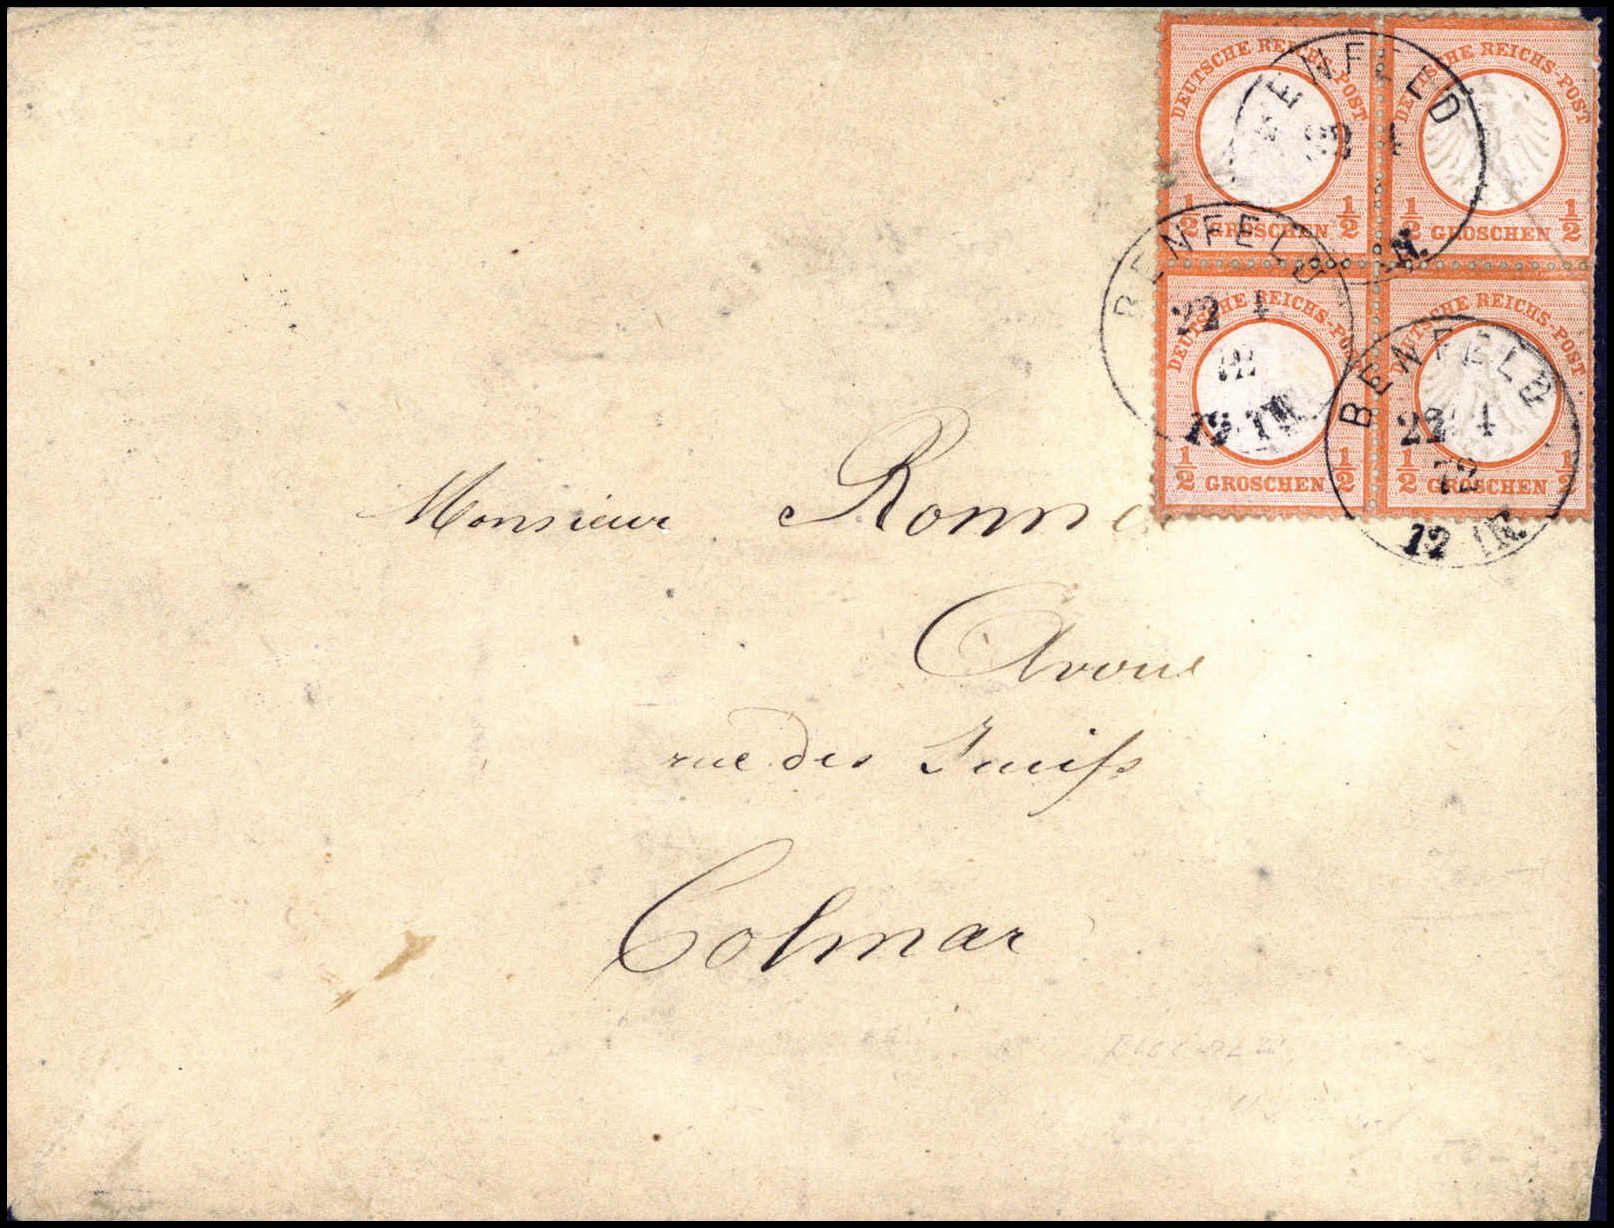 DEUTSCHE REICHS-POST
½ GROSCHEN ½
DEUTSCHE REICHS-POST
½ GROSCHEN ½
DEUTSCHE REICHS-POST
½ GROSCHEN ½
DEUTSCHE REICHS-POST
½ GROSCHEN ½
BENFELD
22 4
N.
BENFELD
22 4
72
12 1N.
BENFELD
22 4
72
12 1N.
Monsieur Ronne
Avoué
rue des Juifs
Colmar